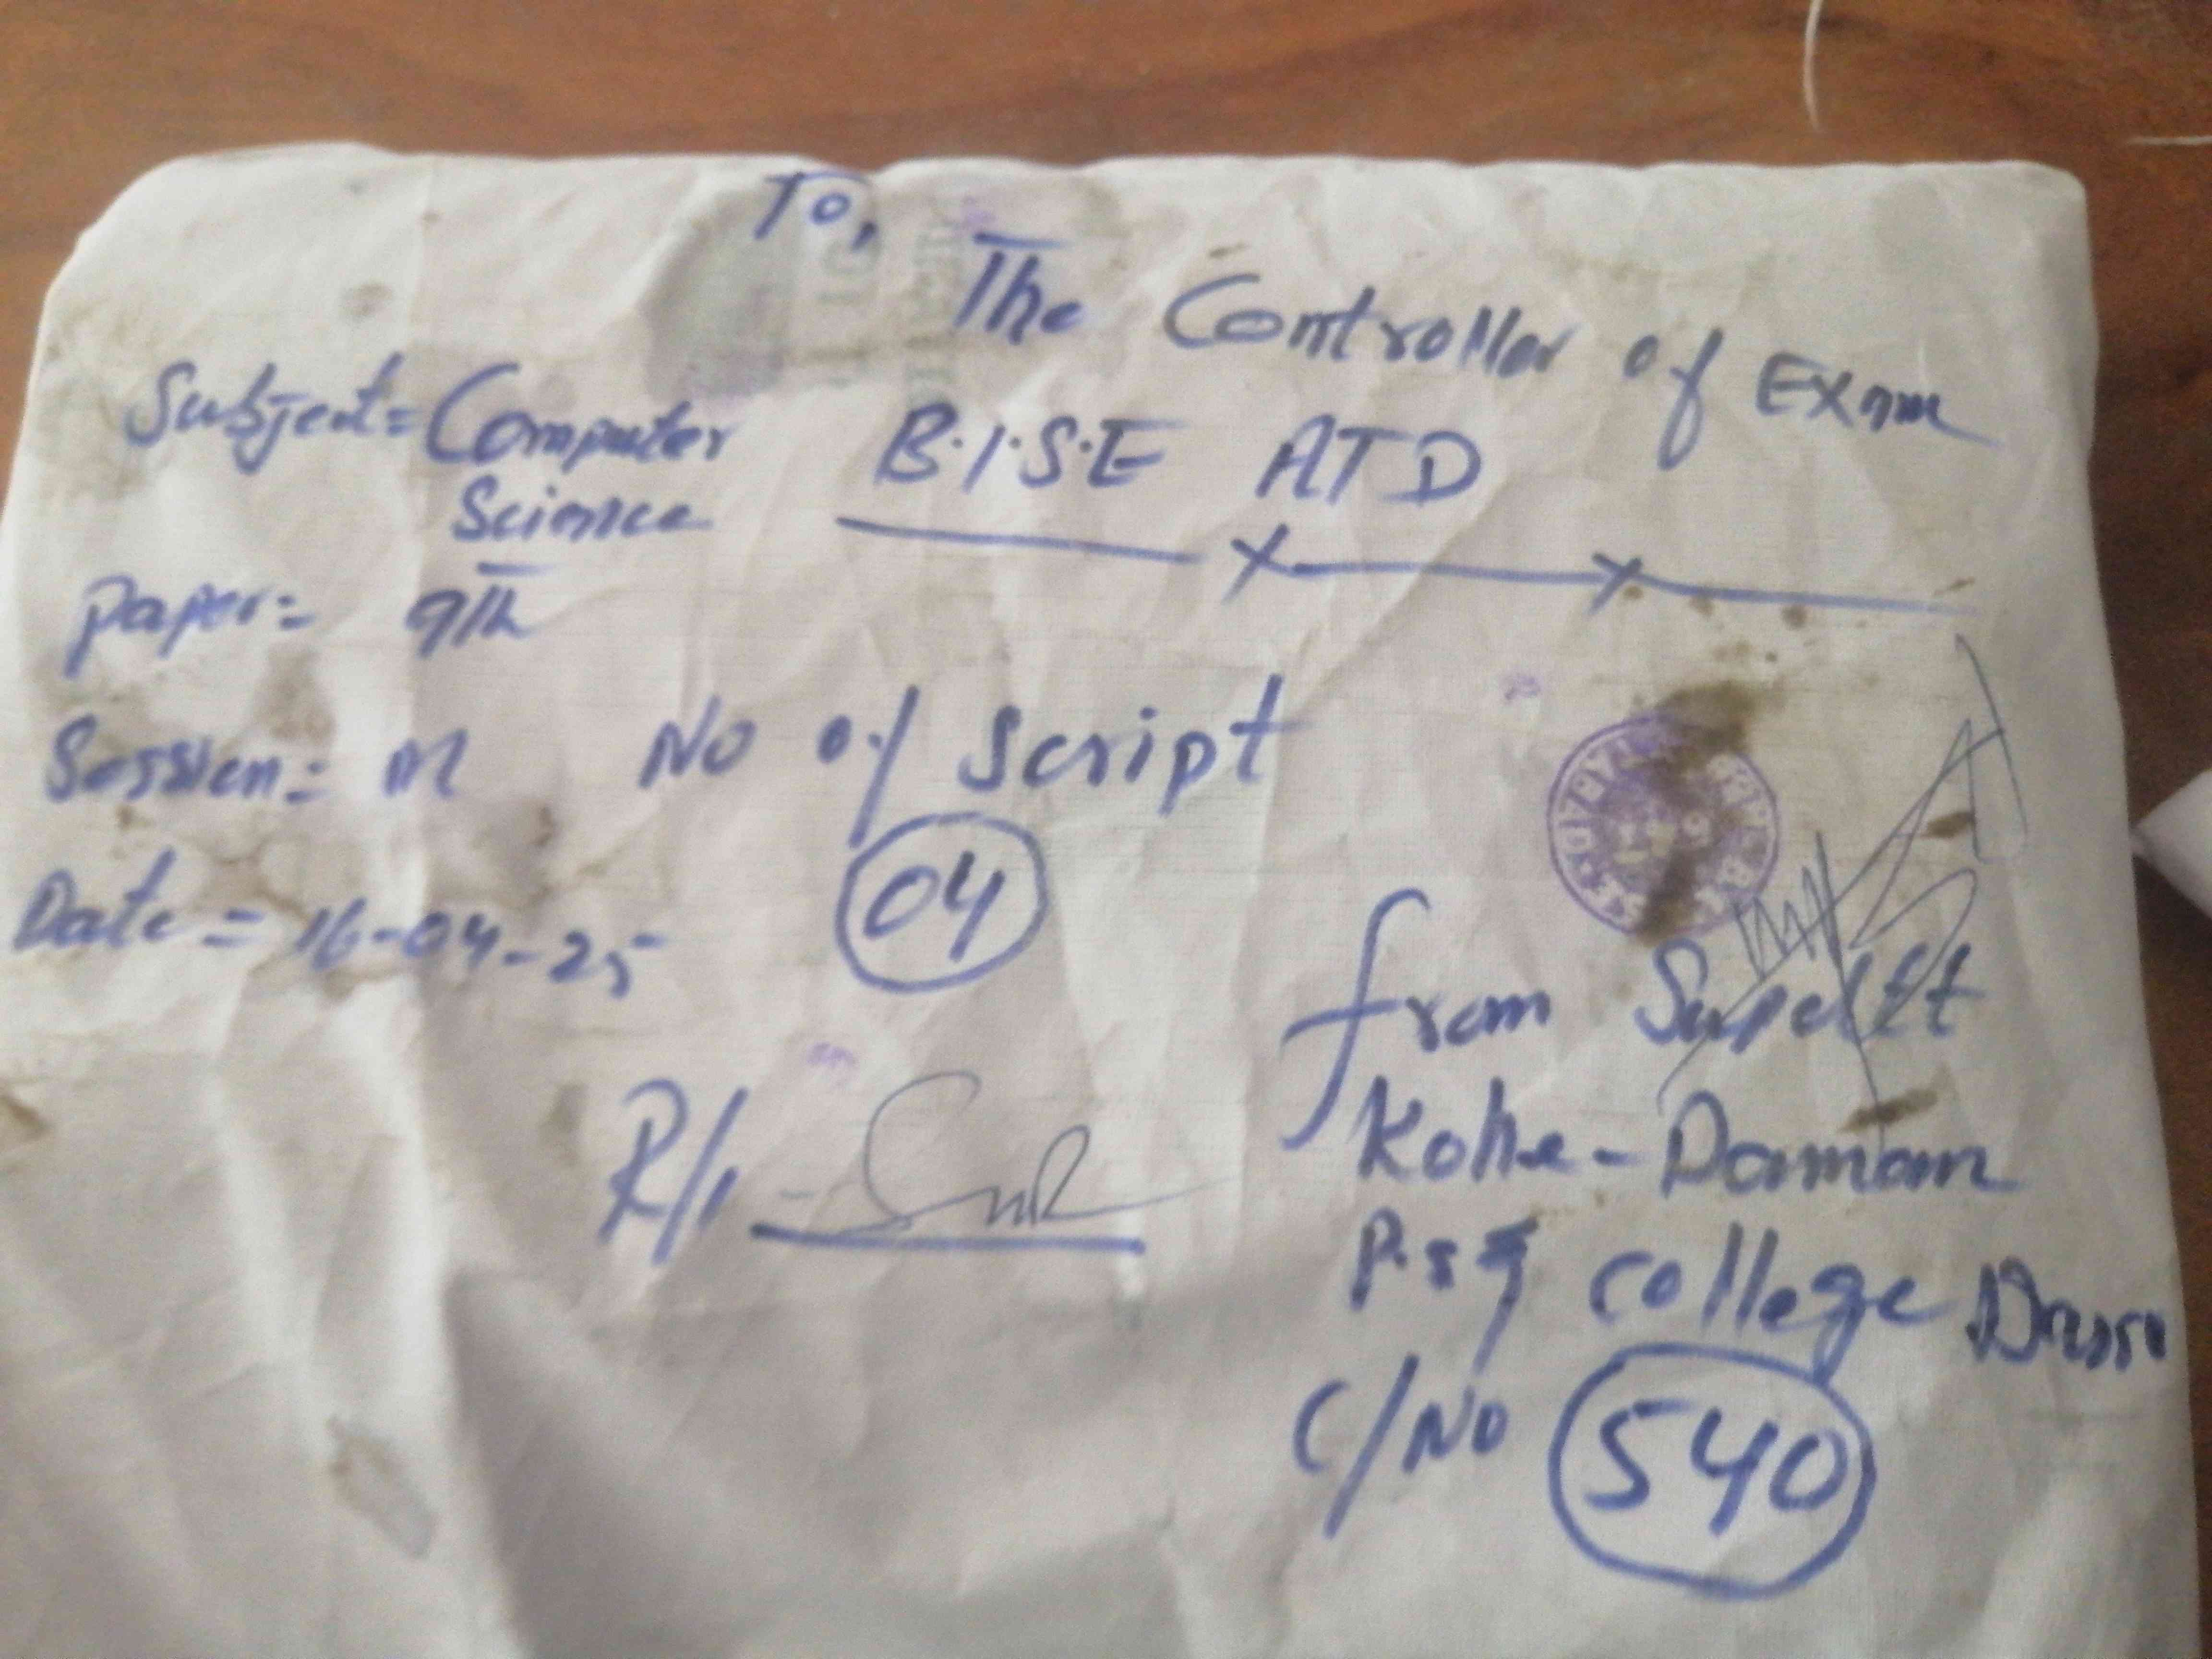 To,
The Controller of Exam
B.I.S.E ATD
Subject= Computer
Science
Paper= 9Th
Session= M
No of Script
04
Date = 16-04-25
R/I -
from Supdtt
Kohe-Daman
P.S college
C/No 540